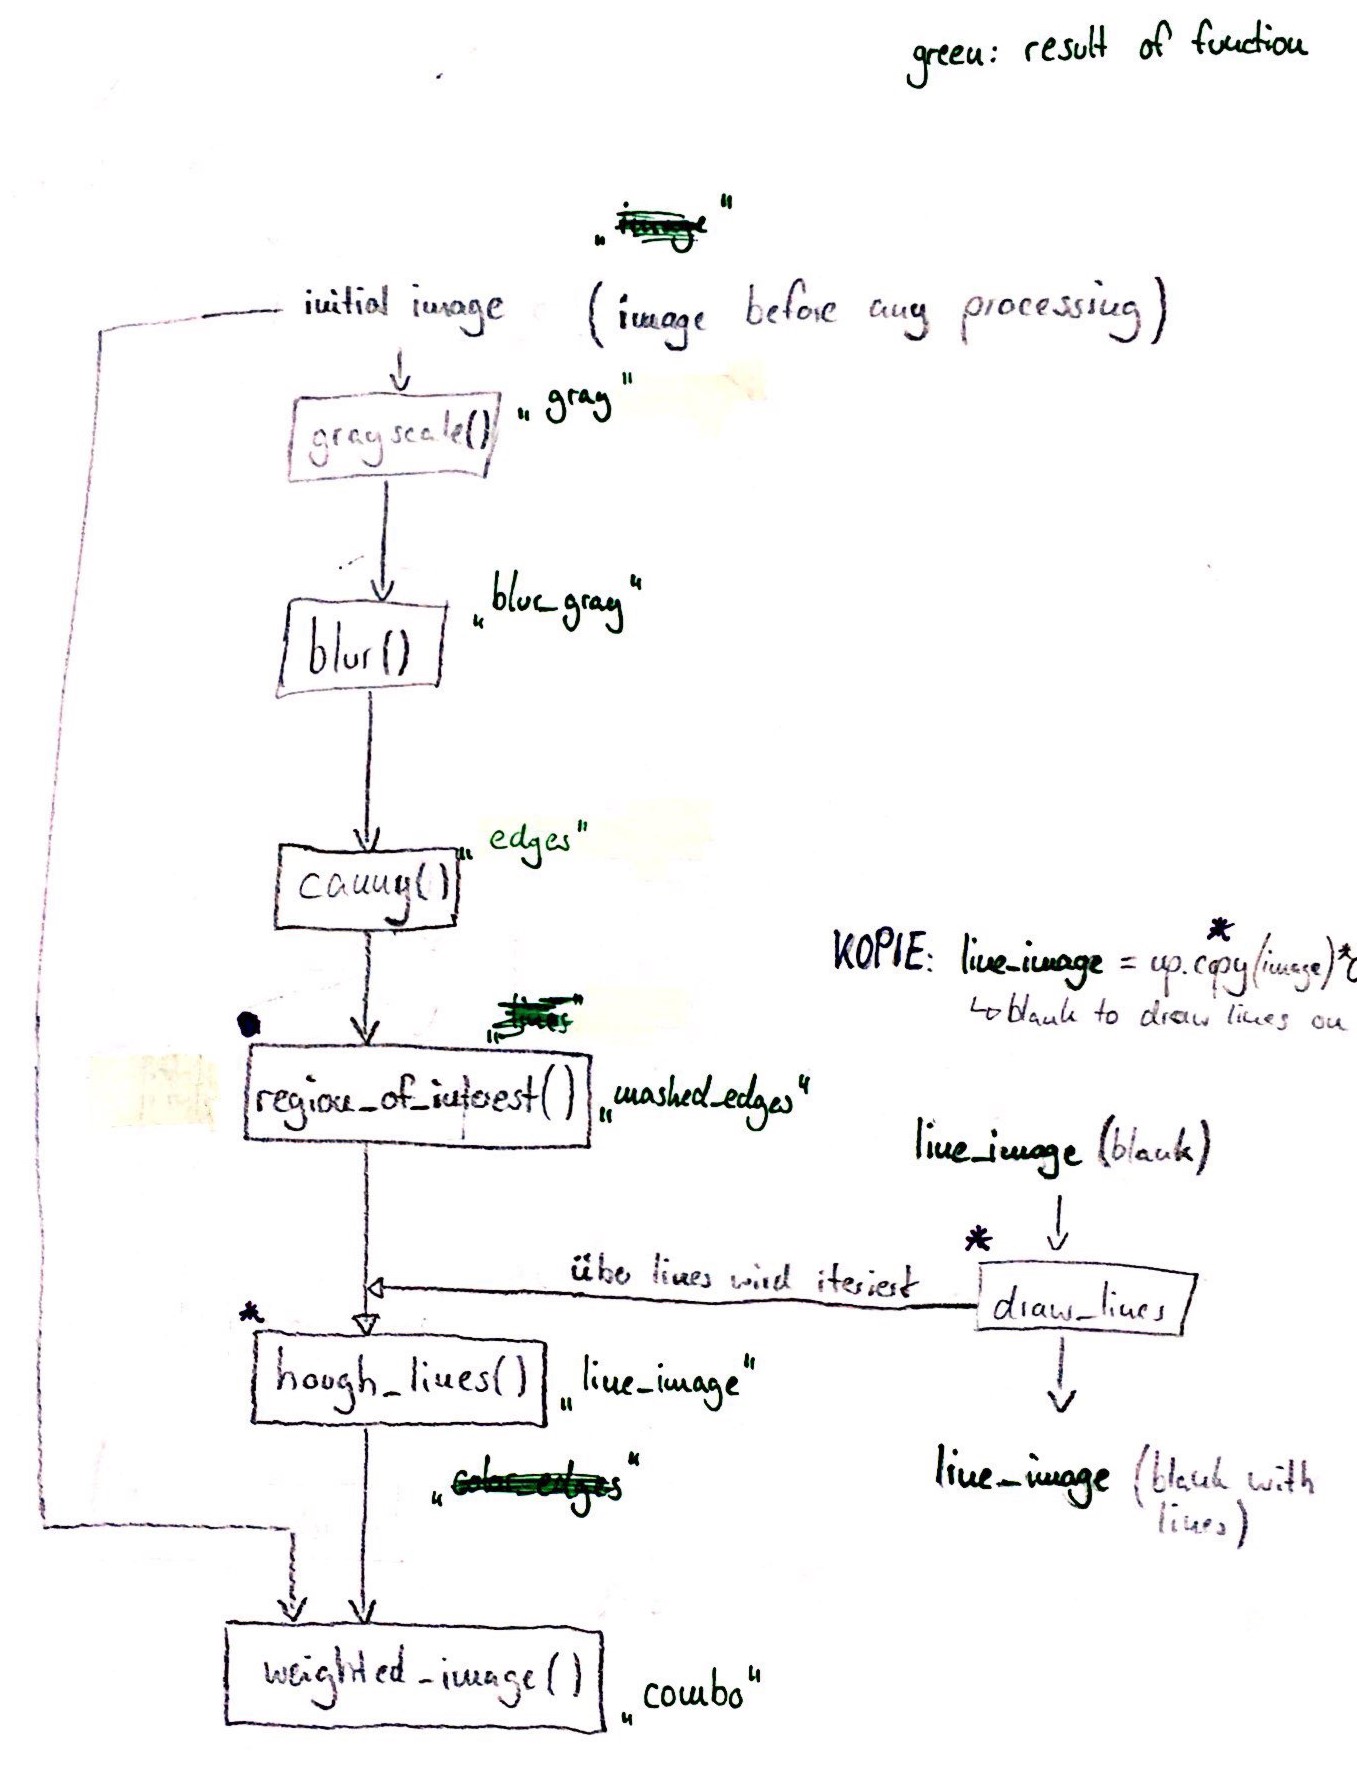 green: result of function
„image"
initial image (image before any processing)
grayscale() „gray"
blur() „blur_gray"
canny() „edges"
KOPIE: line_image = np.copy(image)*0
↳ blank to draw lines on
„lines"
region_of_interest() „masked_edges"
line_image (blank)
über lines wird iteriert
draw_lines
hough_lines() „line_image"
„color_edges"
line_image (blank with
lines)
weighted_image() „combo"